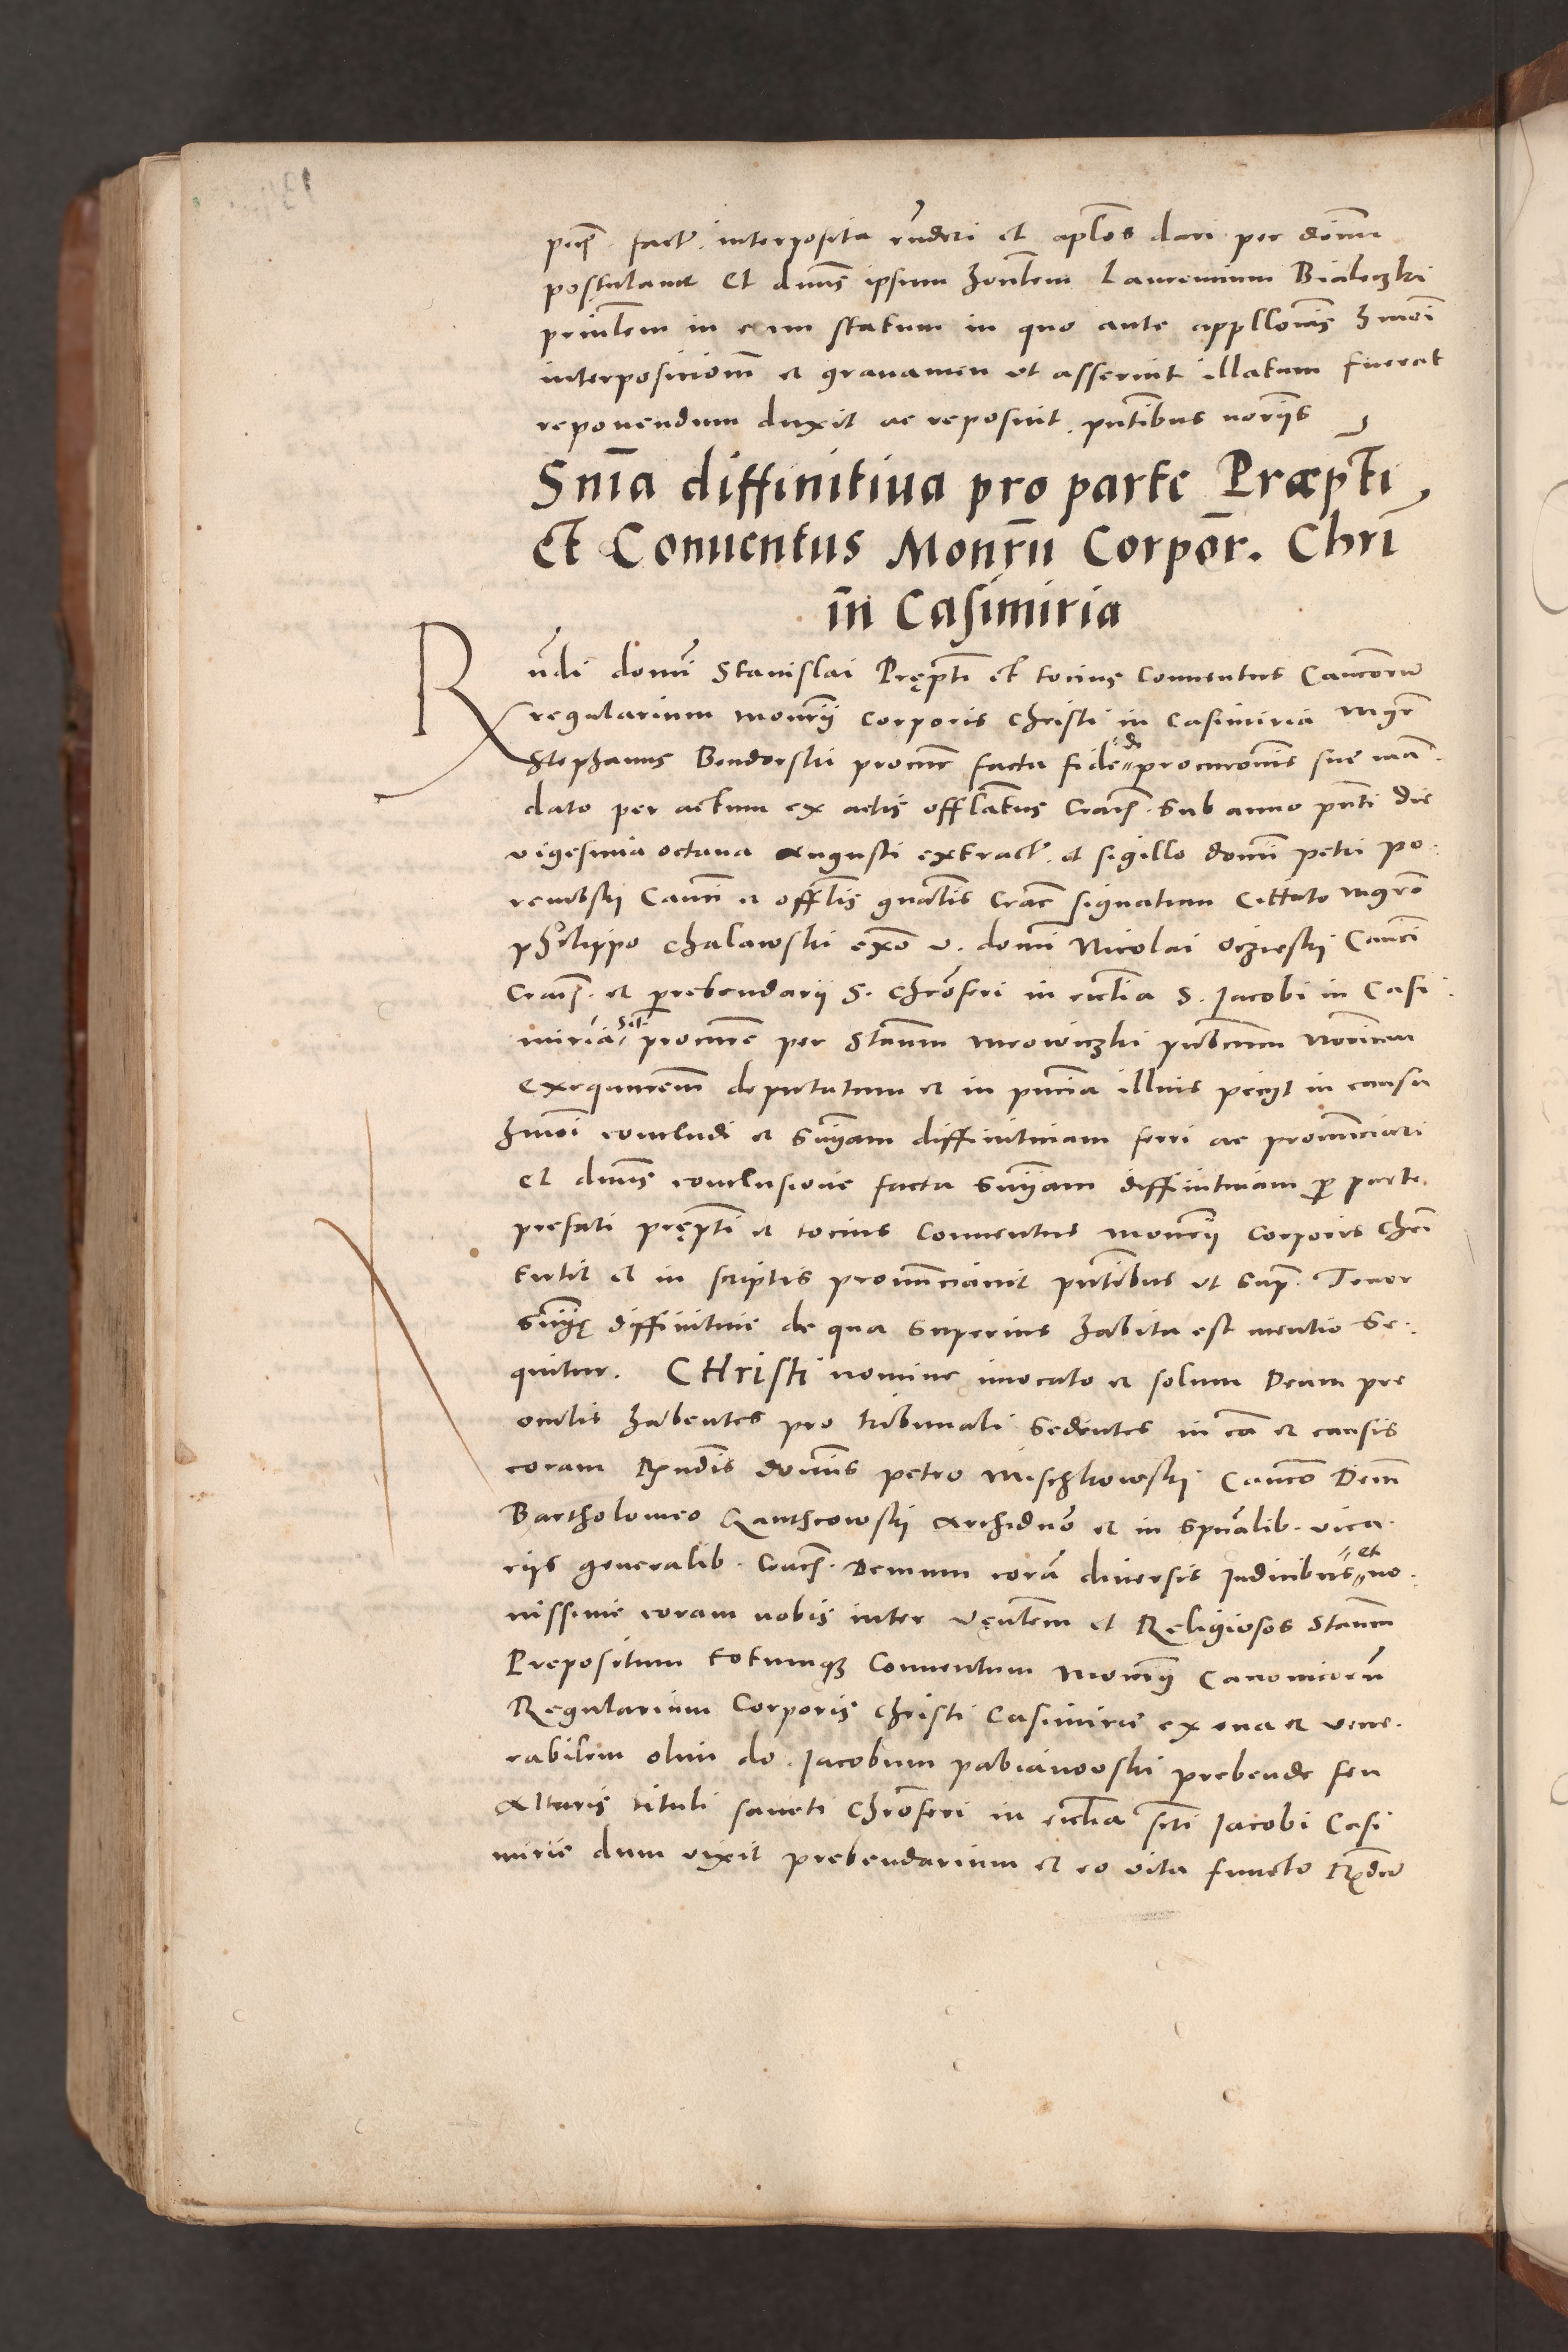 factꝫ. interposita rn̄deri et apl̄os dari per dōmī
postulauit Et dnūs ipsum honlem Laurentium Bialeczki
prinl̄em in eum statum in quo ante appll̄onis hmōi
interposicionē et grauamen vt asseruit illatum fuerat
reponendum duxit ac reposuit. pn̄tibus noriis
Snīa diffinitiua pro parte Præpti
et Conuentus Monrīi Corpor. Chrī
in Casimiria
Rn̄di domī Stanislai Pręptī et tocius Conuentus Canconū
regularium monrīj corporis christi in Casimiria mgr̄
Stephanus Bendorski procur̄ facta fide de procuronis sue man
dato per actum ex actis offlātus Cracꝭ. sub anno pn̄ti die
vigesima octaua Augusti extractꝫ. et sigillo domī petri po.
rembski Canci et offlis gnalis Crac̄ signatum Cittato mgrō
philippo chalawski exō v. domī Nicolai oczieski Canci
Cracꝭ. et prebendarij S. chrōferi in ecclīa S. Jacobi in Casi.
miria sit. procure per Stanm̄ mrowiczki publicum Norium
exequutem̄ deputatum et in pn̄cia illius pecijt in causa
hmōi concludi et sniam diffinitiuam ferri ac pronunciari
et dnūs conclusione facta sniam diffinitiuam p parte
prefati pręptī et tocius Conuentus monrīj Corporis chrī
tulit et in scriptis pronunciauit pn̄tibus vt supꝭ. Tenor
snię diffinitiue de qua superius habita est mentio se.
quitur. CHristi nomine inuocato et solum Deum pre
oculis habentes pro tribunali sedentes in cā et causis
coram Rn̄dis domīs petro mischkowski Canco Demū
Bartholomeo Ganthcowski Archidnō et in spn̄alib. vica.
rijs generalib. Cracꝭ. Demum corā diuersis Iudicibus et no.
uissime coram nobis inter venlem et Religiosos Stanm̄
Prepositum totumqꝫ Conuentum monrīj Canonicorū
Regularium Corporis christi Casimirie ex vna et vene.
rabilem olim do. Iacobum pabianowski prebende seu
Altaris tituli sancti chrōferi in ecclīa scti Iacobi Casi
mirie dum vixit prebendarium et eo vita functo